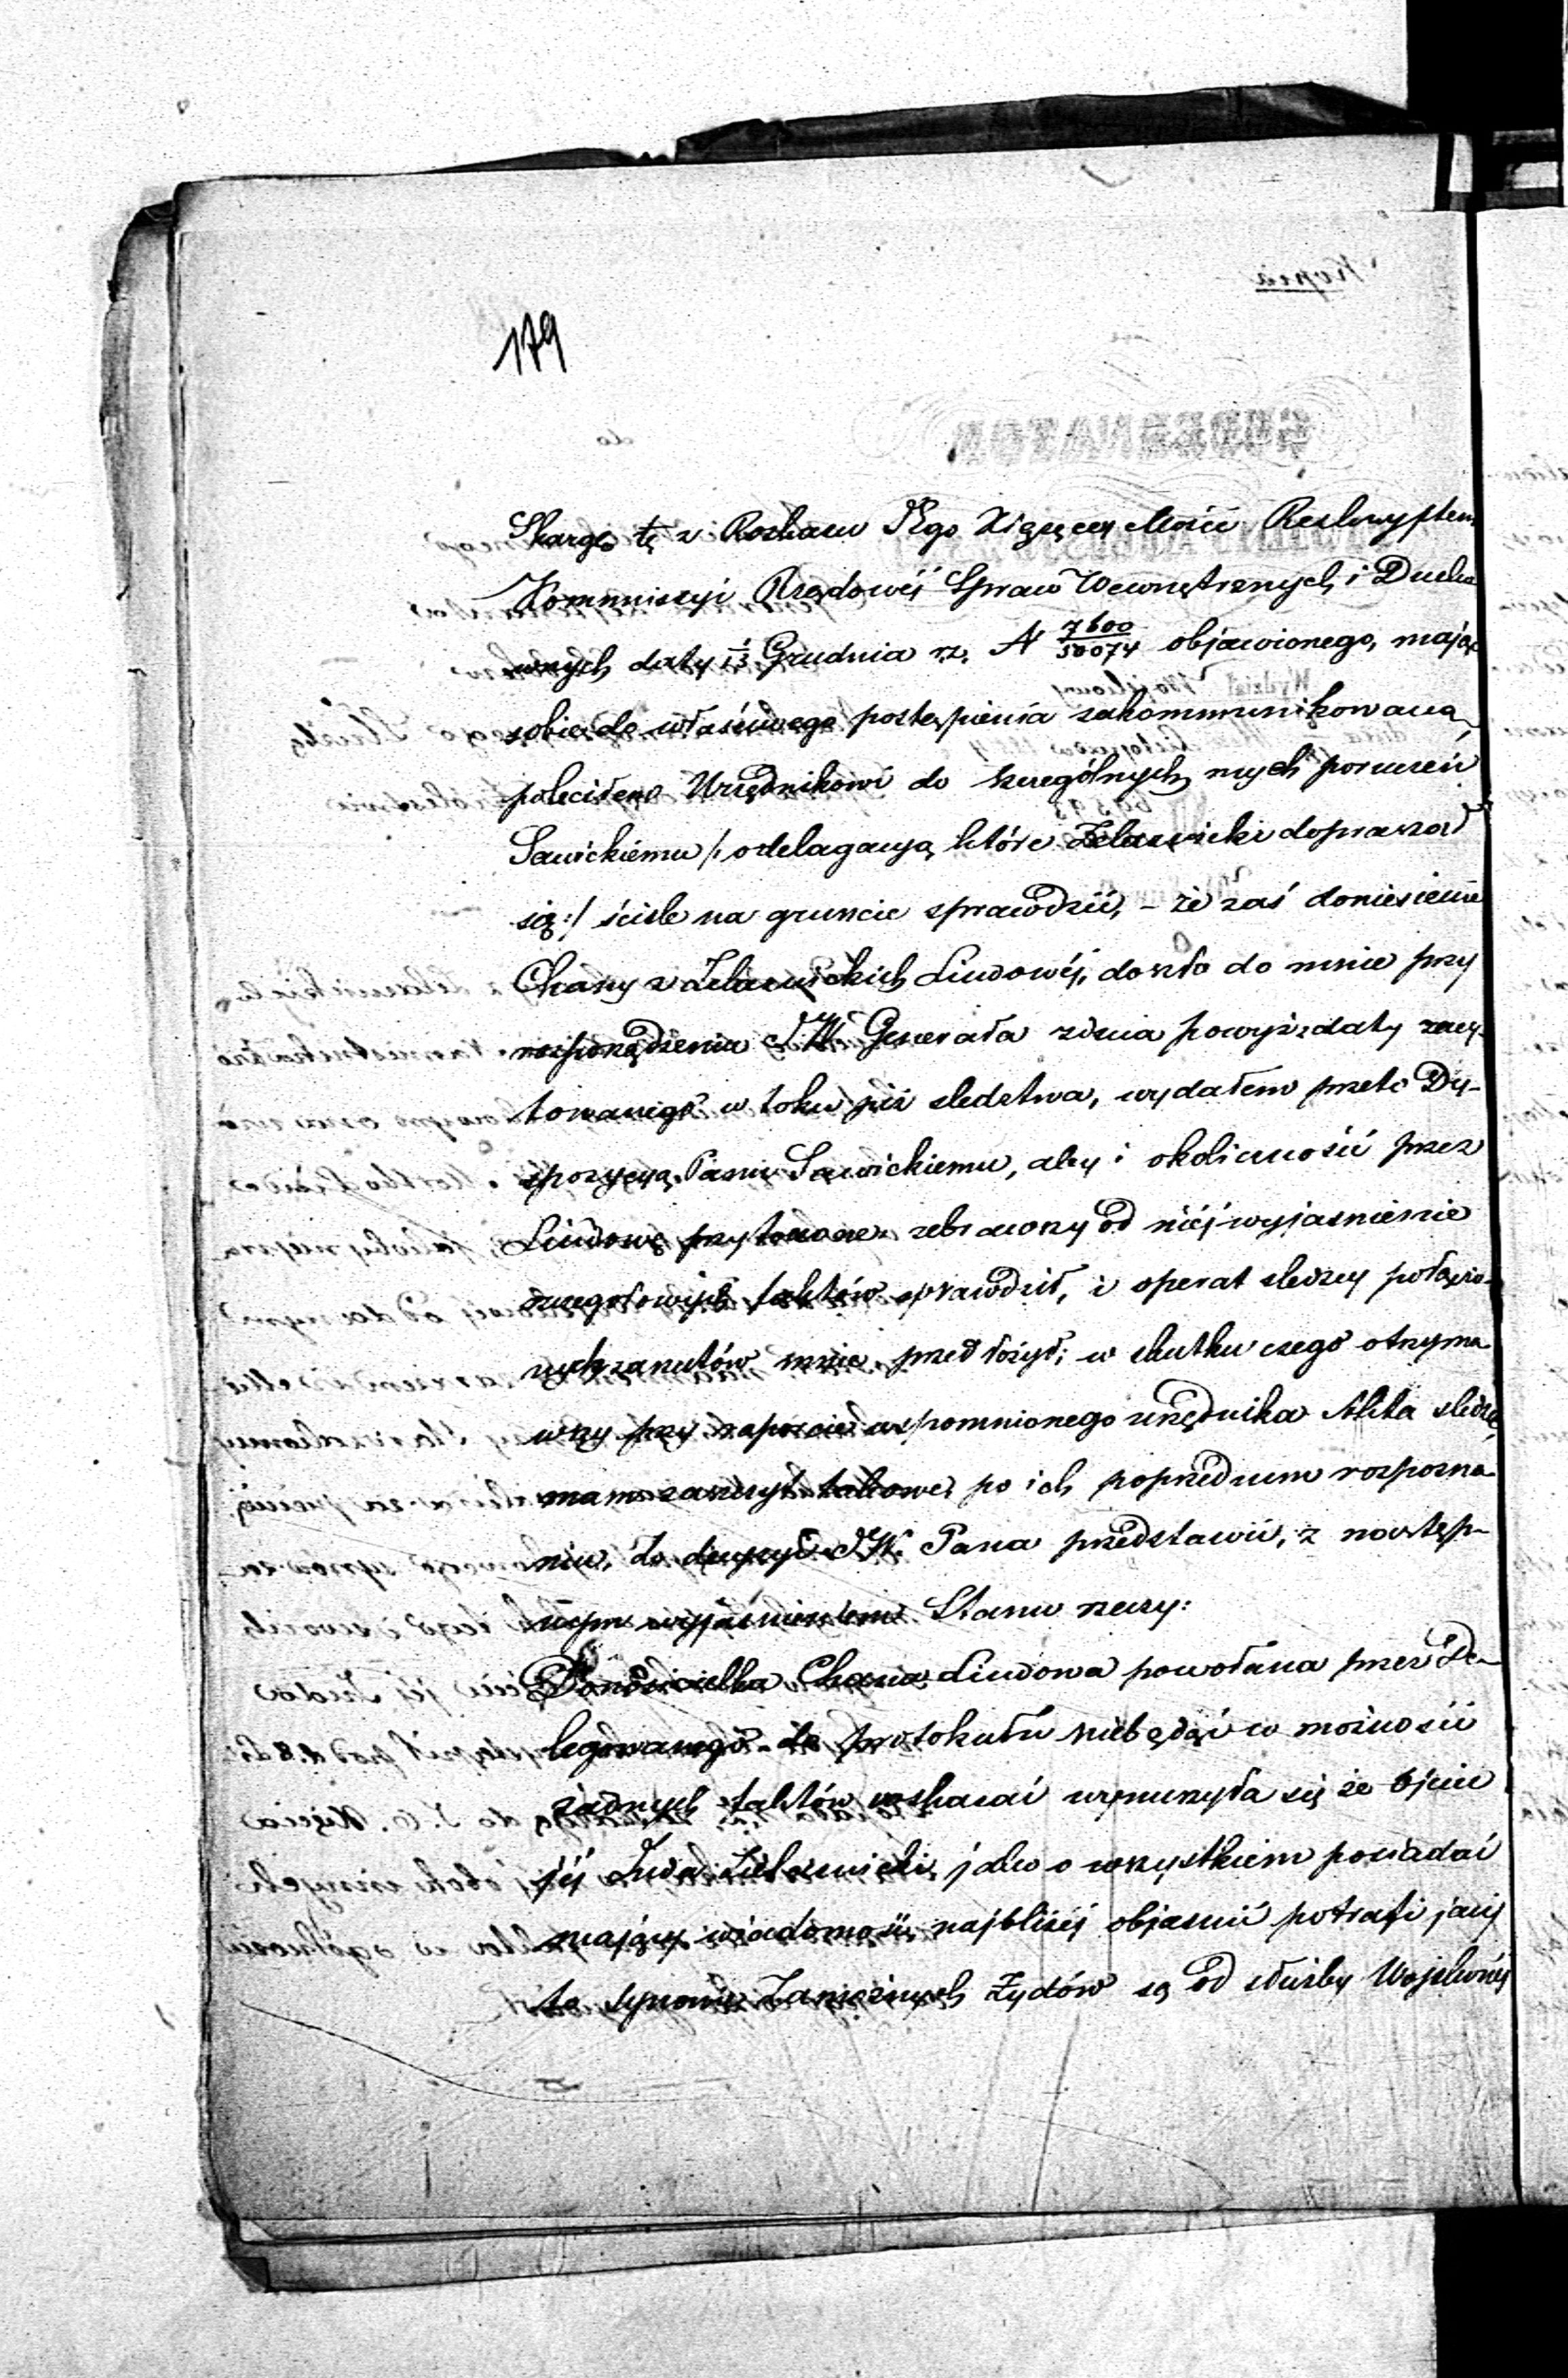 179
Skargę tę z Rozkazu JEgo Xiążęcey Mości Reskryptem
Kommissyi Rządowéj Spraw Wewnętrznych i Ducho
wnych daty 1/13 Grudnia r.z. N 7600/50074 objawionego, mając
sobie do właściwego postąpienia zakommunikowaną
poleciłem Urzędnikowi do szczególnych mych poruczeń
Sawickiemu /: o delegacyą które Zelazwicki dopraszał
się :/ ściśle na gruncie sprawdzić, – że zaś doniesienie
Chany z Zelazwickich Liudowéj, doszło do mnie przy
rozporządzeniu JW Generała zdnia powyż daty zacy-
towanego w toku już sledztwa, wydałem przeto Dy-
spozycyą Panu Sawickiemu, aby i okoliczności przez
Liudowę przytoczone zebrawszy od niéj wyjasnienie
szczegołowych faktów sprawdził, i operat sledczy połączo-
nych zarzutów mnie przedłożył; w skutku czego otrzyma
wszy przy raporcie wspomnionego urzędnika Akta sledcze,
mam zaszczyt takowe, po ich poprzedniem rozpozna-
niu, do decyzyi JW. Pana przedstawić, z następ-
nym wyjaśnieniem Stanu rzeczy:
Donosicielka Chana Liudowa powołana przez De-
legowanego do protokułu niebędąc w możności
żadnych faktów wskazać wymówiła się że Ojciec
jéj Juda Zelazwicki, jako o wszystkiem posiadać
mający wiadomość, najbliżej objasnić potrafi jacy
to synowie Zamożnych Żydów są od służby Wojskowéj